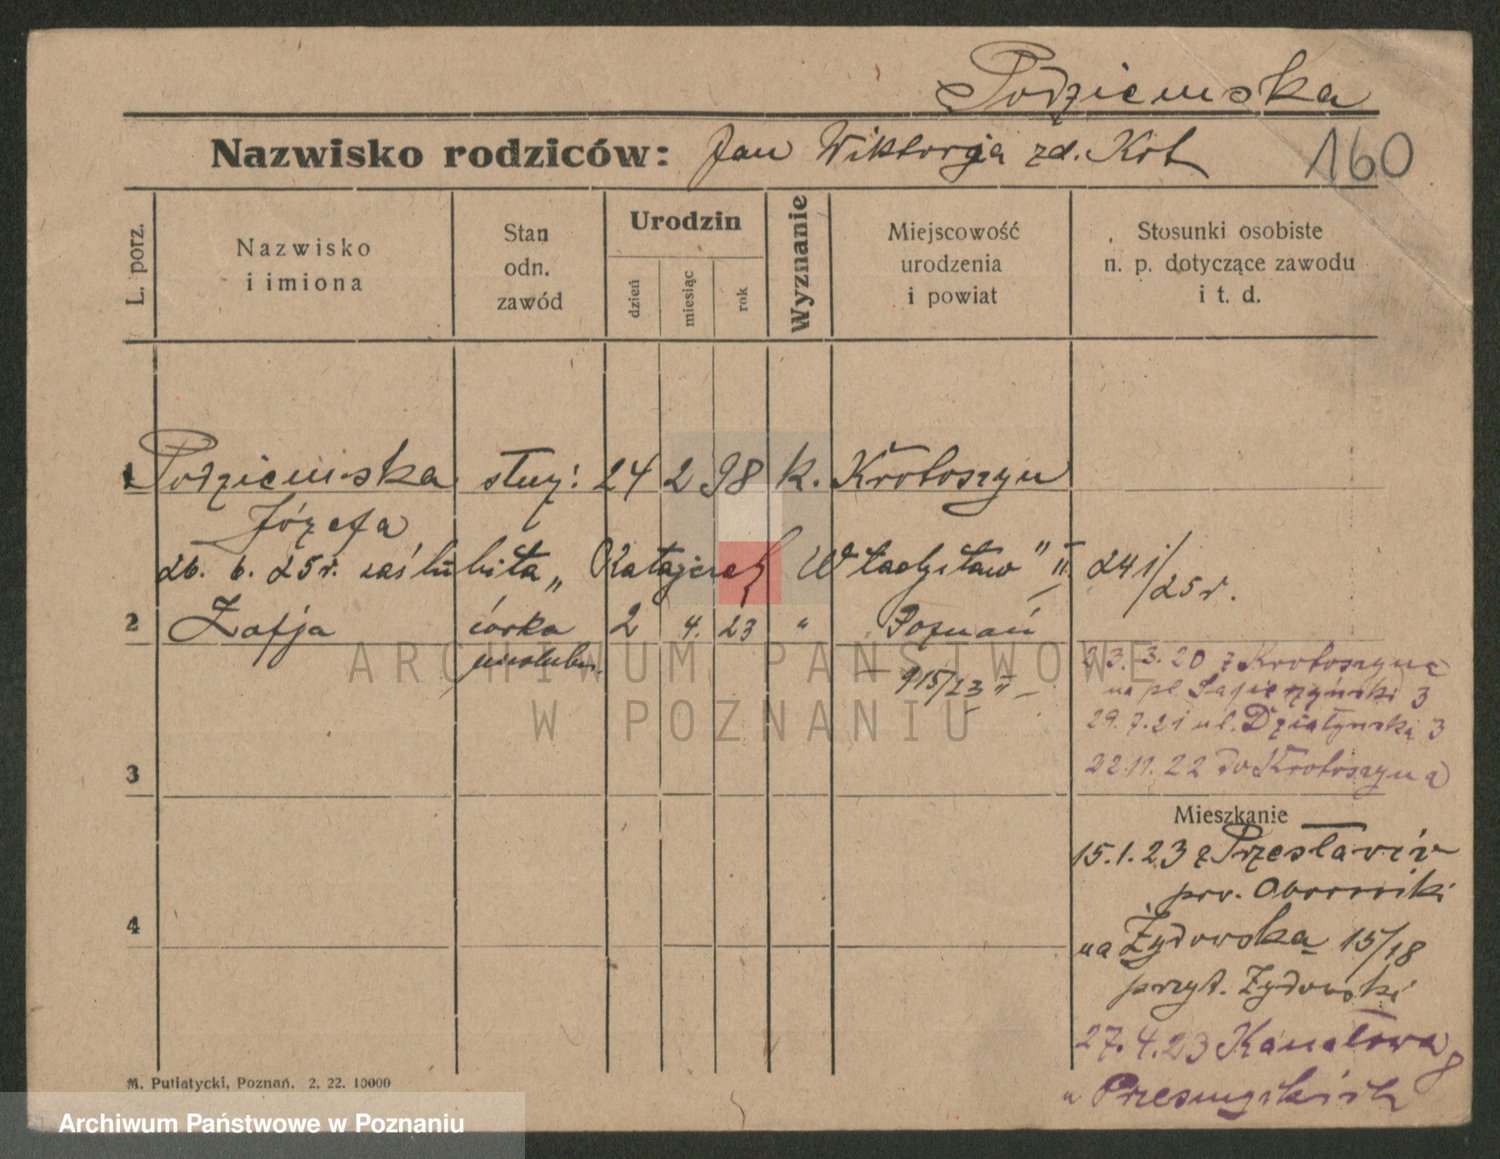 Podziemska
Nazwisko rodziców: Jan Wiktorja zd. Kot
160
L. porz.
Nazwisko i imiona
Stan odn. zawód
Urodzin
dzień
miesiąc
rok
Wyznanie
Miejscowość urodzenia i powiat
Stosunki osobiste n. p. dotyczące zawodu i t. d.
1 Podziemska służ: 24 2 98 k. Krotoszyn
Józefa
26. 6. 25r. zaślubiła „Ratajczak Władysław" II. 241/25r.
2 Zofja córka 2 4. 23 " Poznań
nieślubn. — 915/23 II —
23. 3. 20 z Krotoszyna
na pl. Sapieżyński 3
29. 7. 21 ul. Działyńska 3
22.11. 22 do Krotoszyna
3
Mieszkanie
15.1.23 z
pow. Oborniki
4
na Żydowska 15/18
przyt. Żydowski
27. 4. 23 Kanałowa 8
u
M. Putiatycki, Poznań. 2. 22. 10000
ARCHIWUM PAŃSTWOWE
W POZNANIU
Archiwum Państwowe w Poznaniu